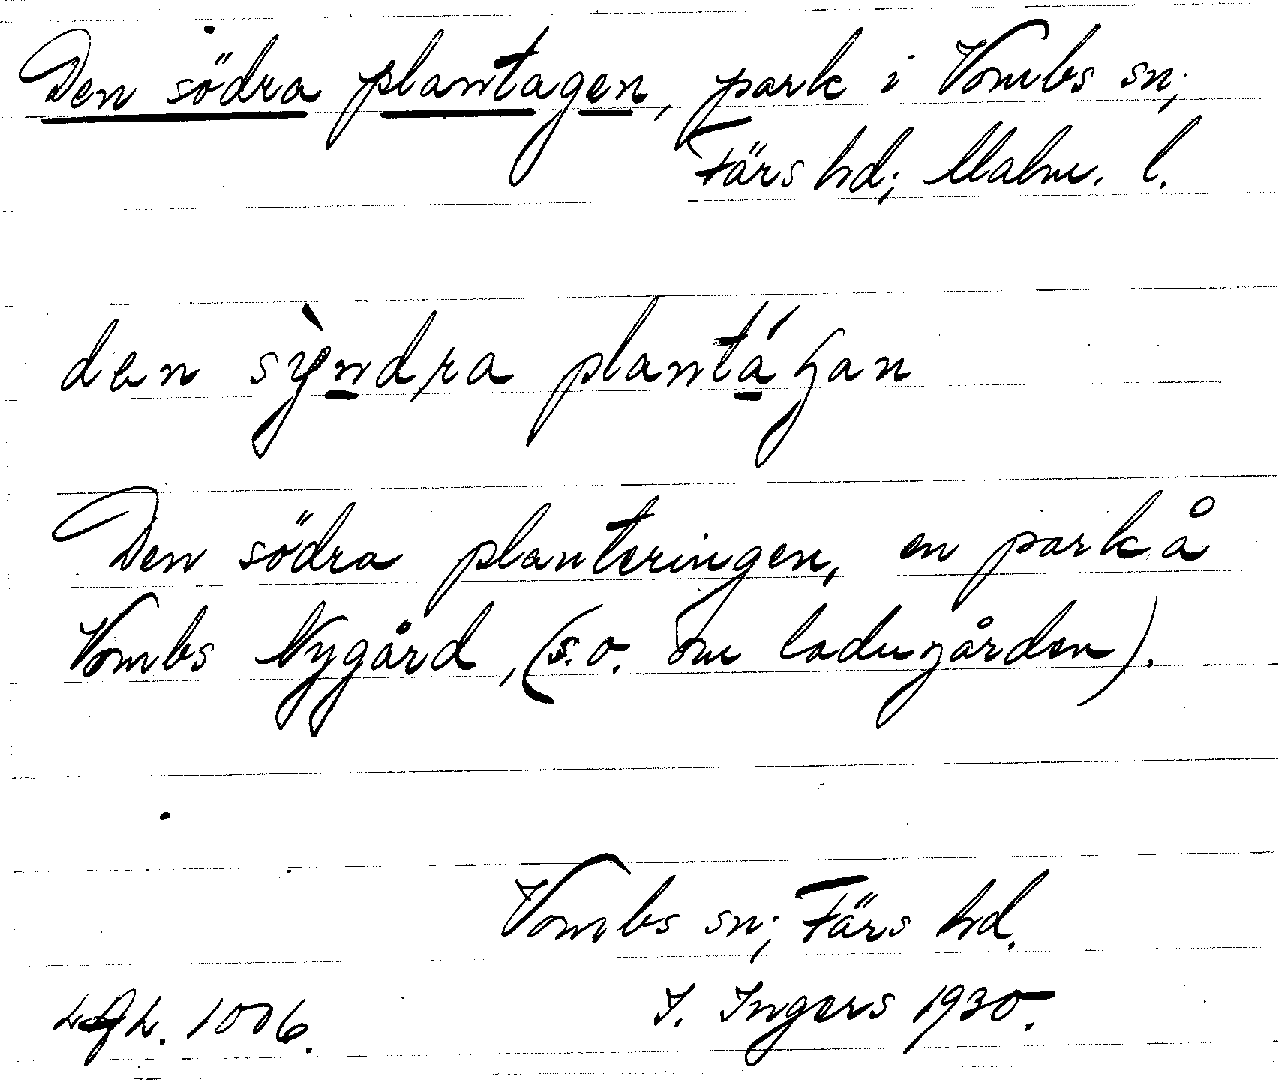 Den södra plantagen, park i Vombs sn;
Färs hd; Malm. l.
den sỳndra plantágan
Den södra planteringen, en park å
Vombs Nygård, (s.o. om ladugården).
Vombs sn; Färs hd.
1006. I. Ingers 1930.